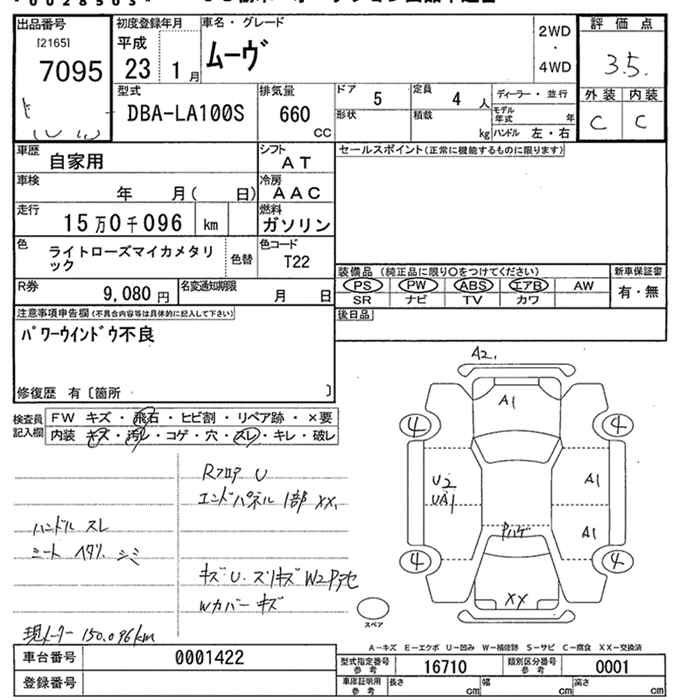 0028503
出品番号
[2165]
7095
初度登録年月
平成
23 1月
車名・グレード
ムーヴ
2WD
・
4WD
評価点
3.5.
外装 内装
C C
型式
DBA-LA100S
排気量
660
CC
ドア 5
定員 4人
ディーラー・並行
形状
積載 kg
モデル年式 年
ハンドル 左・右
車歴 自家用
シフト
AT
セールスポイント(正常に機能するものに限ります)
車検 年 月( 日)
冷房
AAC
走行 15万0千096 km
燃料
ガソリン
色 ライトローズマイカメタリック
色替
色コード
T22
装備品 (純正品に限り○をつけてください)
新車保証書
PS PW ABS エアB AW
有・無
SR ナビ TV カワ
R券 9,080円
名変通知期限 月 日
後日品
注意事項申告欄(不具合内容等は具体的に記入して下さい)
パワーウインドウ不良
修復歴 有〔箇所 〕
検査員記入欄
FW キズ・飛石・ヒビ割・リペア跡・×要
内装 キズ・汚レ・コゲ・穴・スレ・キレ・破レ
Rフロア U
エンドパネル 1部 XX,
ハンドル スレ
シート ヘタリ、シミ
キズU.スリキズ W2P
Wカバー キズ
現メーター 150.096km
A2,
A1
4 4
U2
UA1
A1
A1
Pハゲ
4 4
XX
スペア
A-キズ E-エクボ U-凹み W-補修跡 S-サビ C-腐食 XX-交換済
車台番号 0001422
型式指定番号参考 16710
類別区分番号参考 0001
登録番号
車庫証明用参考 長さ cm 幅 cm 高さ cm